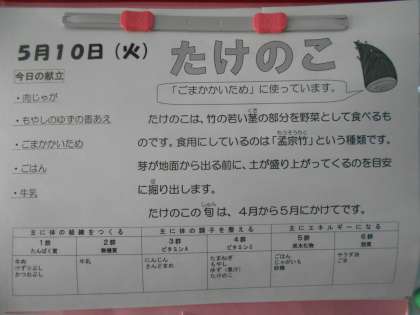 5月10日（火） たけのこ
今日の献立
「ごまかかいため」に使っています。
・肉じゃが
・もやしのゆずの香あえ
・ごまかかいため
・ごはん
・牛乳
たけのこは、竹の若い茎の部分を野菜として食べるも
のです。食用にしているのは「孟宗竹」という種類です。
芽が地面から出る前に、土が盛り上がってくるのを目安
に掘り出します。
たけのこの旬は、4月から5月にかけてです。
主に体の組織をつくる 主に体の調子を整える 主にエネルギーになる
1群 2群 3群 4群 5群 6群
たんぱく質 無機質 ビタミンA ビタミンC 炭水化物 脂質
牛肉 牛乳 にんじん たまねぎ ごはん サラダ油
けずりぶし さんどまめ もやし じゃがいも ごま
かつおぶし ゆず（果汁） 砂糖
たけのこ